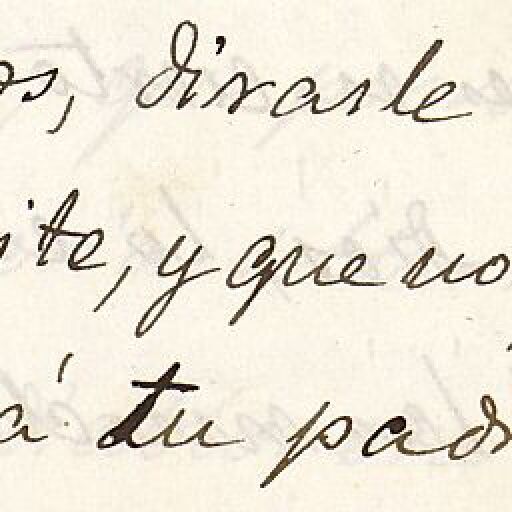 os, dirasle
ite, y que no
á tu pad